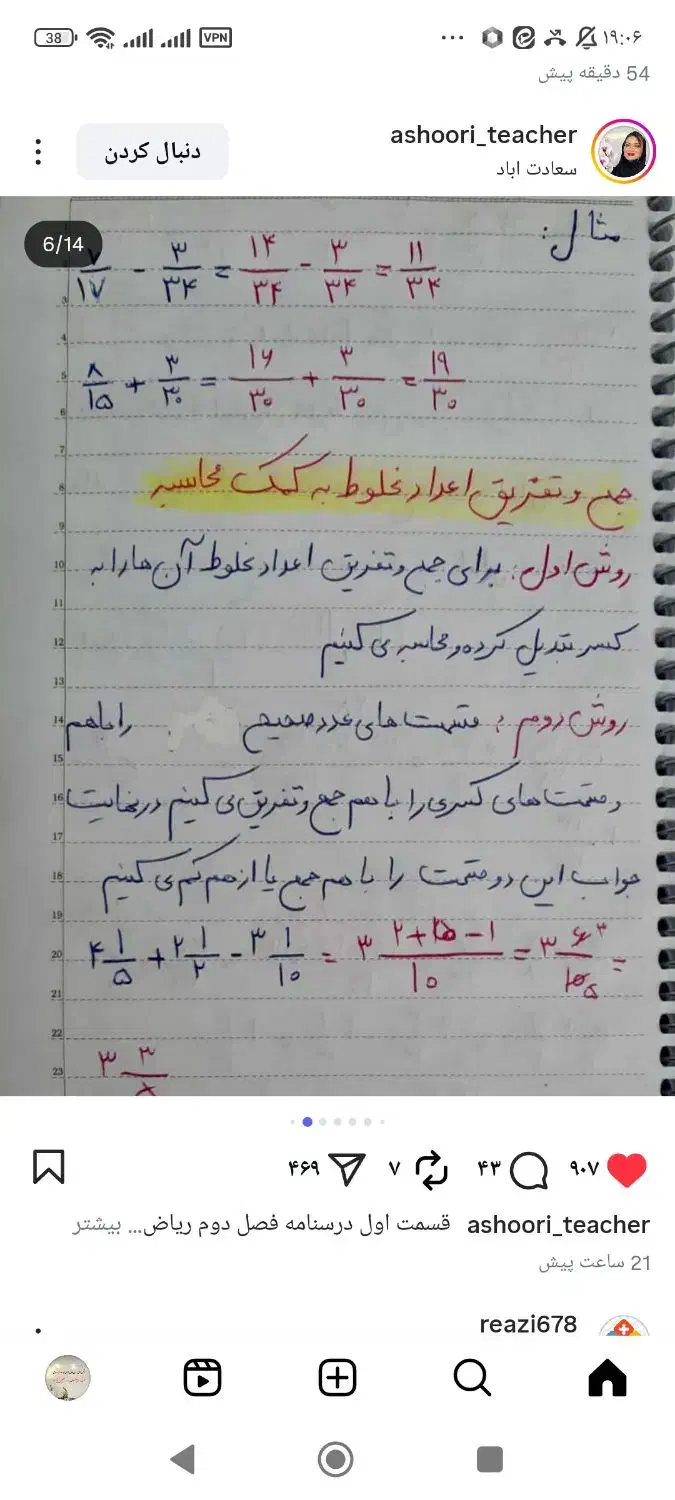 38 VPN ... ۱۹:۰۶
54 دقیقه پیش
ashoori_teacher
سعادت اباد
دنبال کردن
6/14
مثال:
۷/۱۷ - ۳/۳۴ = ۱۴/۳۴ - ۳/۳۴ = ۱۱/۳۴
۸/۱۵ + ۳/۳۰ = ۱۶/۳۰ + ۳/۳۰ = ۱۹/۳۰
جمع و تفریق اعداد مخلوط به کمک محاسبه
روش اول: برای جمع و تفریق اعداد مخلوط آن ها را به
کسر تبدیل کرده و محاسبه می کنیم
روش دوم: قسمت های عدد صحیح را باهم
و قسمت های کسری را با هم جمع و تفریق می کنیم در نهایت
جواب این دو قسمت را با هم جمع یا از هم کم می کنیم
۴ ۱/۵ + ۲ ۱/۲ - ۳ ۱/۱۰ = ۳ ۲+۵-۱/۱۰ = ۳ ۶ ۳/۱۰ ۵ =
۳ ۳/
۹۰۷ ۴۳ ۷ ۴۶۹
ashoori_teacher قسمت اول درسنامه فصل دوم ریاض... بیشتر
21 ساعت پیش
reazi678